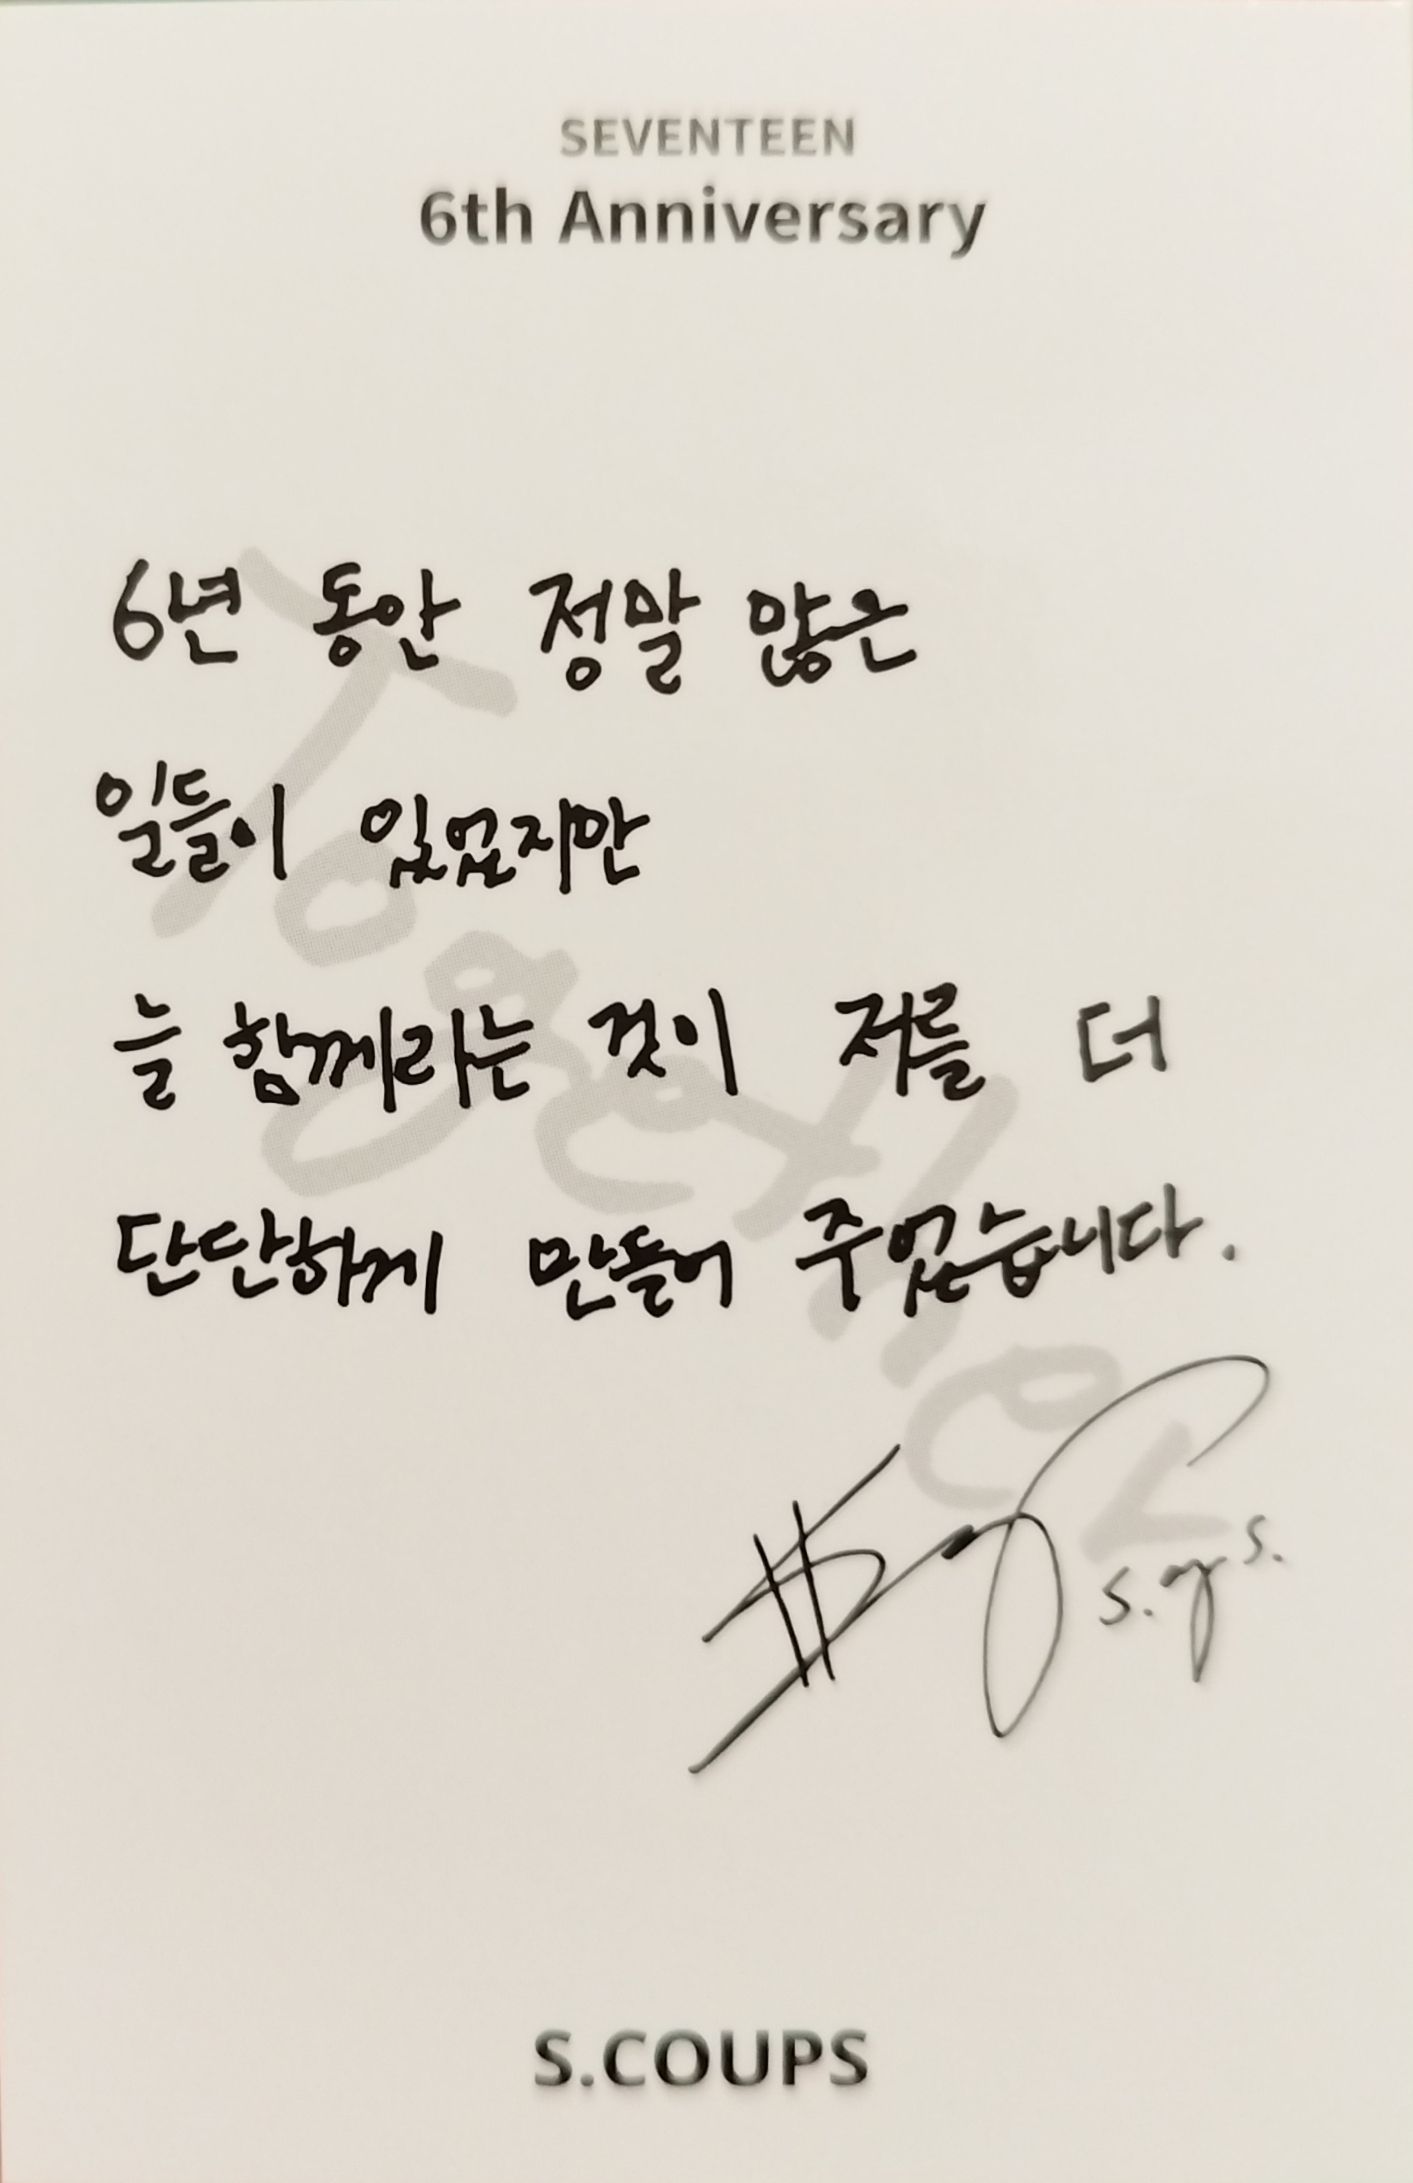 SEVENTEEN
6th Anniversary
6년 동안 정말 많은
일들이 있었지만
늘 함께라는 것이 저를 더
단단하게 만들어 주었습니다.
Together
S.COUPS